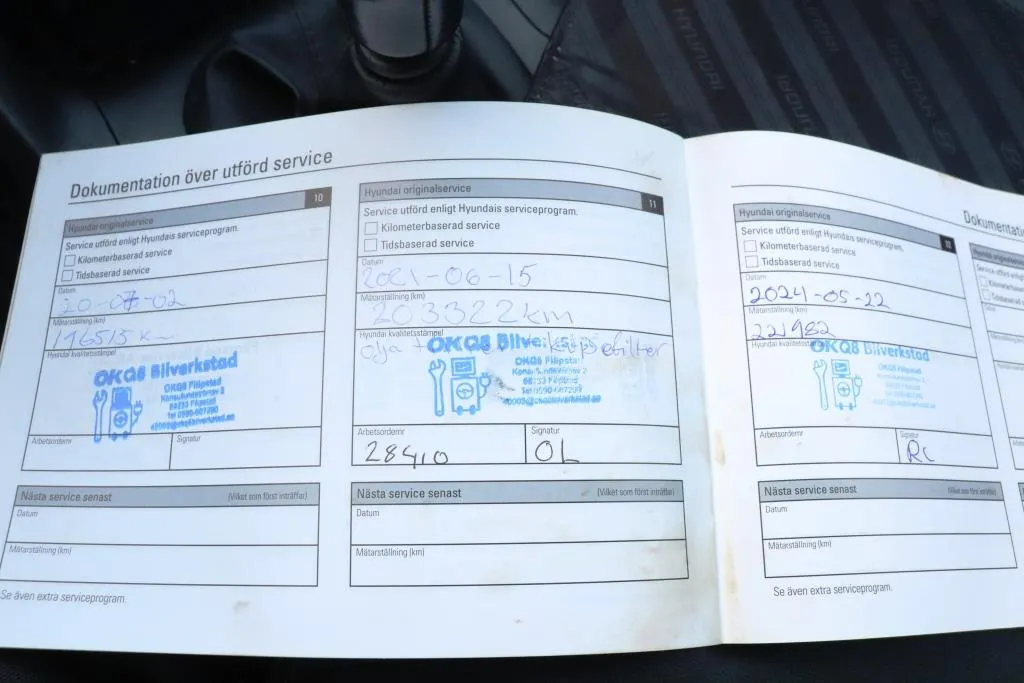 HYUNDAI
HYUNDAI
HYUNDAI
Dokumentation över utförd service
Hyundai originalservice 10
Service utförd enligt Hyundais serviceprogram.
Kilometerbaserad service
Tidsbaserad service
Datum
20-07-02
Mätarställning (km)
Hyundai kvalitetsstämpel
OKQ8 Bilverkstad
OKQ8 Filipstad
Tel 0590-607290
Arbetsordernr Signatur
Nästa service senast (Vilket som först inträffar)
Datum
Mätarställning (km)
Se även extra serviceprogram.
Hyundai originalservice 11
Service utförd enligt Hyundais serviceprogram.
Kilometerbaserad service
Tidsbaserad service
Datum
2021-06-15
Mätarställning (km)
203322km
Hyundai kvalitetsstämpel
olja
OKQ8
OKQ8 Filipstad
Arbetsordernr Signatur
28410 OL
Nästa service senast (Vilket som först inträffar)
Datum
Mätarställning (km)
Dokumentati
Hyundai originalservice 12
Service utförd enligt Hyundais serviceprogram.
Kilometerbaserad service
Tidsbaserad service
Datum
2024-05-22
Mätarställning (km)
221982
Hyundai
OKQ8 Bilverkstad
OKQ8 Filipstad
Arbetsordernr Signatur
RC
Nästa service senast (Vilket som först inträffar)
Datum
Mätarställning (km)
Se även extra serviceprogram.